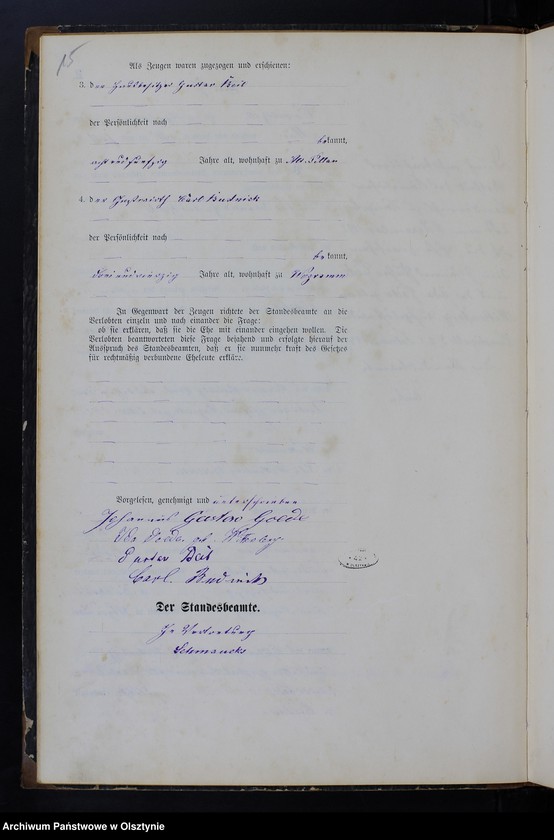 15
Als Zeugen waren zugezogen und erschienen:
3. der Hausbesitzer Gustav Beil
der Persönlichkeit nach
bekannt,
achtundfünfzig Jahre alt, wohnhaft zu Alt Pillau
4. der Gastwirth Carl Budnick
der Persönlichkeit nach
bekannt,
dreiundvierzig Jahre alt, wohnhaft zu Wogramm
In Gegenwart der Zeugen richtete der Standesbeamte an die
Verlobten einzeln und nach einander die Frage:
ob sie erklären, daß sie die Ehe mit einander eingehen wollen. Die
Verlobten beantworteten diese Frage bejahend und erfolgte hierauf der
Ausspruch des Standesbeamten, daß er sie nunmehr kraft des Gesetzes
für rechtmäßig verbundene Eheleute erkläre.
Vorgelesen, genehmigt und unterschrieben
Johannes Gustav Goede
Goede
Gustav Beil
Carl Budnick
Der Standesbeamte.
In Vertretung
Archiwum Państwowe w Olsztynie